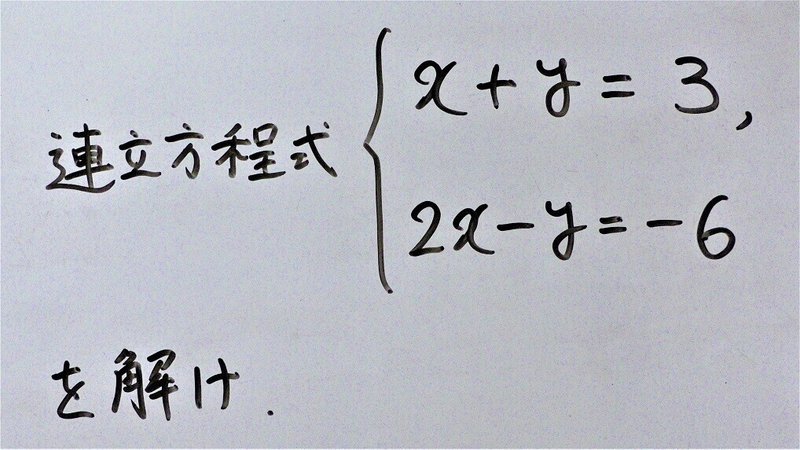 連立方程式 { x + y = 3,
2x - y = -6
を解け.